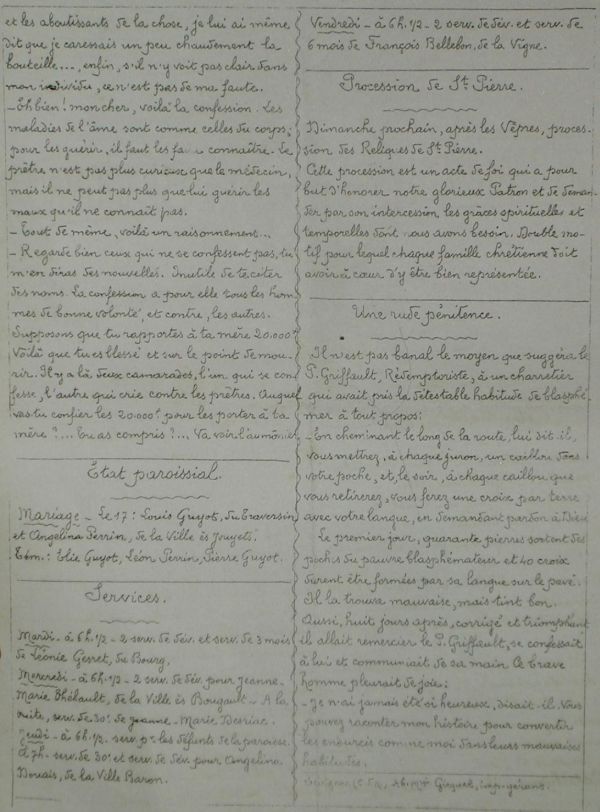 et les aboutissants de la chose, je lui ai même
dit que je caressais un peu chaudement la
bouteille..., enfin, s'il n'y voit pas clair dans
mon individu, ce n'est pas de ma faute.
- Eh bien! mon cher, voilà la confession. Les
maladies de l'âme sont comme celles du corps;
pour les guérir, il faut les faire connaître. Le
prêtre n'est pas plus curieux que le médecin,
mais il ne peut pas plus que lui guérir les
maux qu'il ne connaît pas.
- Tout de même, voilà un raisonnement...
- Regarde bien ceux qui ne se confessent pas, tu
m'en diras des nouvelles. Inutile de te citer
des noms. La confession a pour elle tous les hom-
mes de bonne volonté, et contre, les autres.
Supposons que tu rapportes à ta mère 20.000f
Voilà que tu es blessé et sur le point de mou-
rir. Il y a là deux camarades, l'un qui se con-
fesse, l'autre qui crie contre les prêtres. Auquel
vas-tu confier les 20.000f pour les porter à ta
mère ?... Tu as compris ?... Va voir l'aumônier
Etat paroissial.
Mariage - Le 17: Louis Guyot, du Traversin
et Angelina Perrin, de la Ville ès Jouyets.
Tém.: Elie Guyot, Léon Perrin, Pierre Guyot.
Services.
Mardi - à 6h.1/2 - 2 serv. de dév. et serv. de 3 mois
de Léonie Gesret, du Bourg.
Mercredi - à 6h.1/2 - 2 serv. de dév. pour Jeanne-
Marie Thébault, de la Ville ès Bougault - A la
suite, serv. de 30e de Jeanne-Marie Desriac.
Jeudi - à 6h.1/2 - serv. pr les défunts de la paroisse.
A 7h - serv. de 30e et serv. de dév. pour Angelina
Douais, de la Ville Baron.
Vendredi - à 6h.1/2 - 2 serv. de dév. et serv. de
6 mois de François Bellebon, de la Vigne.
Procession de St Pierre.
Dimanche prochain, après les Vêpres, proces-
sion des Reliques de St Pierre.
Cette procession est un acte de foi qui a pour
but d'honorer notre glorieux Patron et de deman-
der par son intercession, les grâces spirituelles et
temporelles dont nous avons besoin. Double mo-
tif pour lequel chaque famille chrétienne doit
avoir à cœur d'y être bien représentée.
Une rude pénitence.
Il n'est pas banal le moyen que suggéra le
P. Griffault, Rédemptoriste, à un charretier
qui avait pris la détestable habitude de blasphé-
mer à tout propos:
- En cheminant le long de la route, lui dit-il,
vous mettrez, à chaque juron, un caillou dans
votre poche, et, le soir, à chaque caillou que
vous retirerez, vous ferez une croix par terre
avec votre langue, en demandant pardon à Dieu
Le premier jour, quarante pierres sortent des
poches du pauvre blasphémateur et 40 croix
durent être formées par sa langue sur le pavé.
Il la trouva mauvaise, mais tint bon.
Aussi, huit jours après, corrigé et triomphant
il allait remercier le P. Griffault, se confessait
à lui et communiait de sa main. Ce brave
homme pleurait de joie:
- Je n'ai jamais été si heureux, disait-il. Vous
pouvez raconter mon histoire pour convertir
les endurcis comme moi dans leurs mauvaises
habitudes.
Gicquel, imp-gérant.